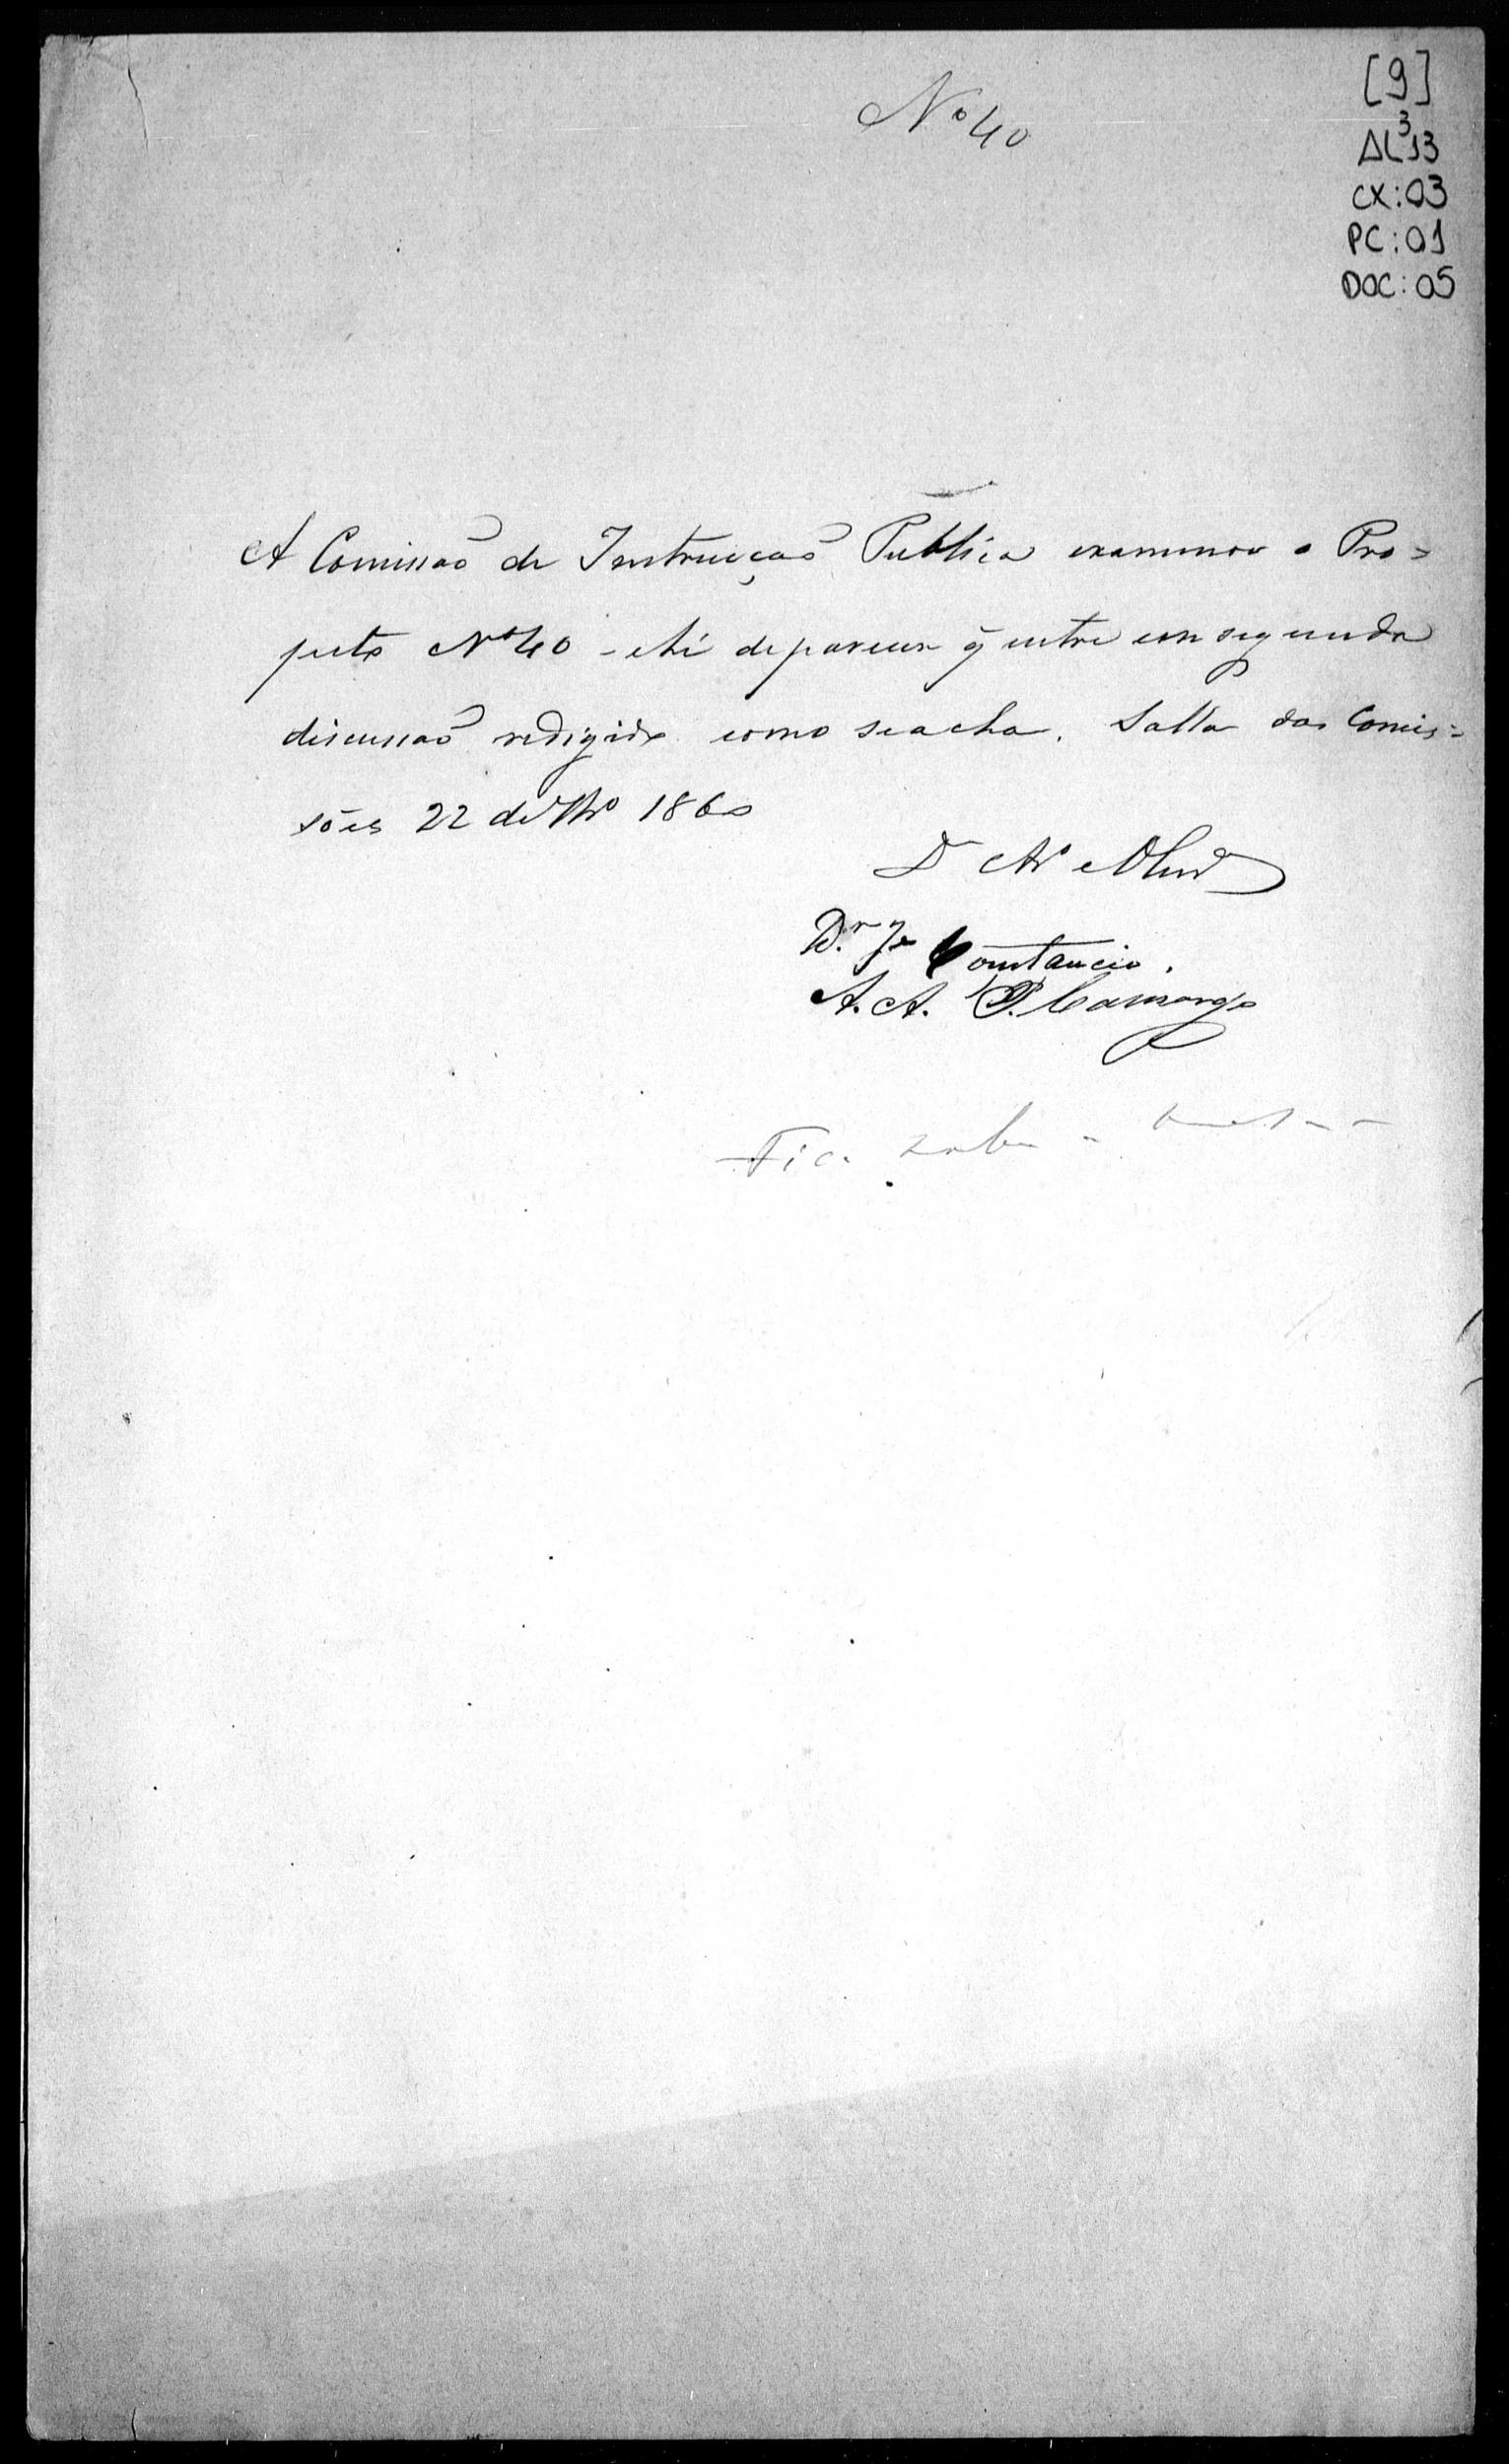 Nº 40
[9]
AL³13
CX:03
PC:01
DOC:05
A Comissaõ de Instrucçaõ Publica examinou o Pro=
jecto Nº 40 - ehé de parecer q̃ entre em segunda
discussaõ redigido como se acha. Salla das Comis=
sões 22 de 1860
D
Dr. Jº Constancio.
A. A. P. Camargo
Fica sobre a mesa